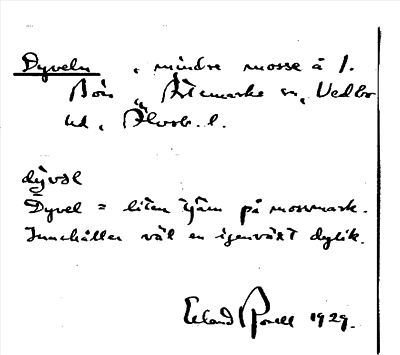 Dyveln, mindre mosse å 1.
Bön, Ärtemarks sn, Vedbo
hd, Älvsb. l.
dȳvəl
Dyvel = liten tjärn på mossmark.
Innehåller väl en igenväxt dylik.
Erland Rosell 1929.